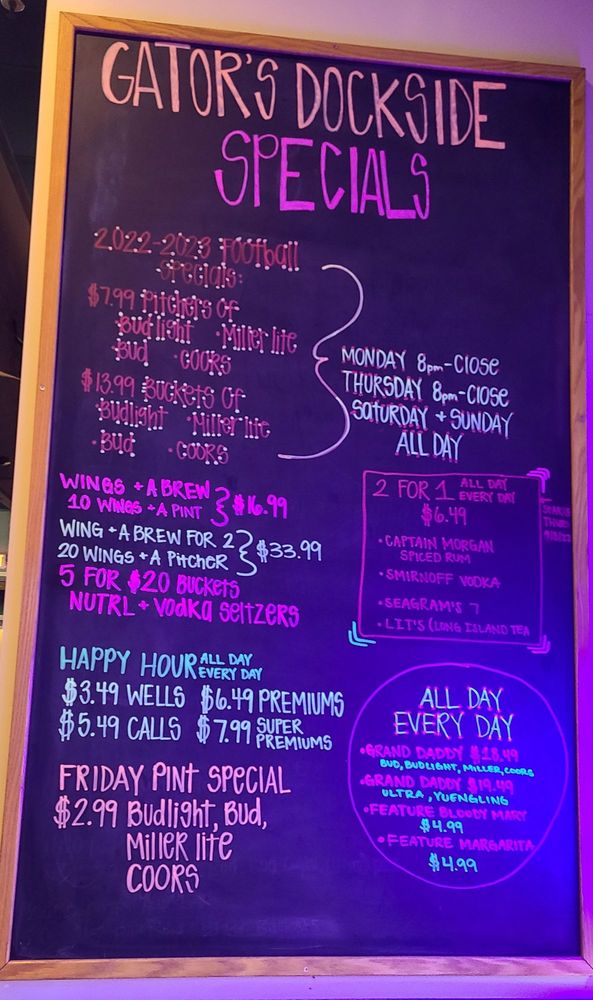 GATOR'S DOCKSIDE
SPECIALS
2022-2023 Football
Specials:
$7.99 Pitchers Of
•Bud light •Miller lite
•Bud •COORS
$13.99 Buckets Of
•Budlight •Miller lite
•Bud •COORS
MONDAY 8pm-Close
THURSDAY 8pm-Close
SATURDAY + SUNDAY
ALL DAY
WINGS + A BREW
10 WINGS + A PINT
$16.99
WING + A BREW FOR 2
20 WINGS + A PitcheR
$33.99
5 FOR $20 BUCKETS
NUTRL + Vodka Seltzers
2 FOR 1 ALL DAY
EVERY DAY
$6.49
•CAPTAIN MORGAN
SPICED RUM
•SMIRNOFF VODKA
•SEAGRAM'S 7
•LIT'S (LONG ISLAND TEA
HAPPY HOUR ALL DAY
EVERY DAY
$3.49 WELLS $6.49 PREMIUMS
$5.49 CALLS $7.99 SUPER
PREMIUMS
FRIDAY PINT SPECIAL
$2.99 Budlight, Bud,
Miller lite
COORS
ALL DAY
EVERY DAY
•GRAND DADDY $18.49
BUD, BUDLIGHT, MILLER, COORS
•GRAND DADDY $19.49
ULTRA, YUENGLING
•FEATURE BLOODY MARY
$4.99
•FEATURE MARGARITA
$4.99